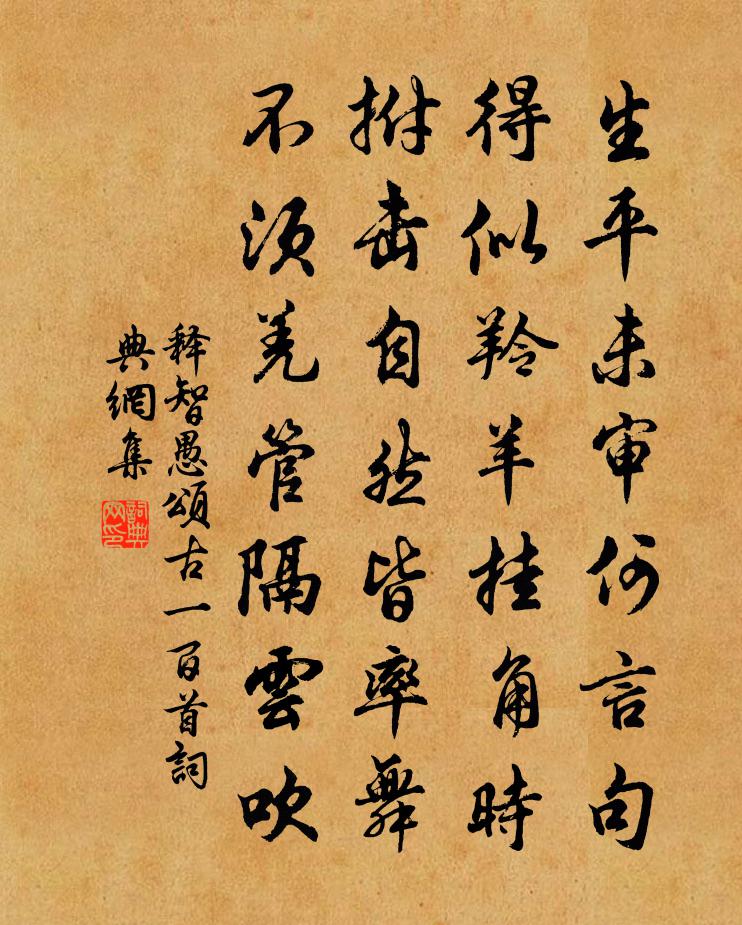 生平未审何言句
得似羚羊挂角时
拊击自然皆率舞
不须羌管隔雲吹
释智愚頌古一百首詞
典網集
詞典
网印